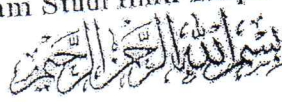 am Studi Ilmu
بسم الله الرحمن الرحيم